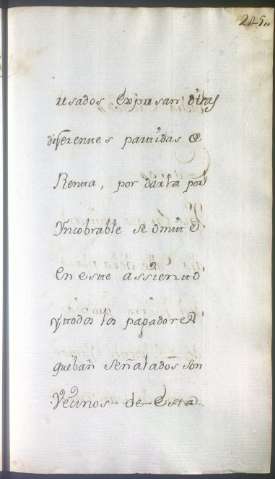 245
usados Expresan otras
diferentes partidas de
Renta, por darla por
Incobrable se omite
en este assiento
y todos los pagadores
que ban señalados son
Vecinos de esta